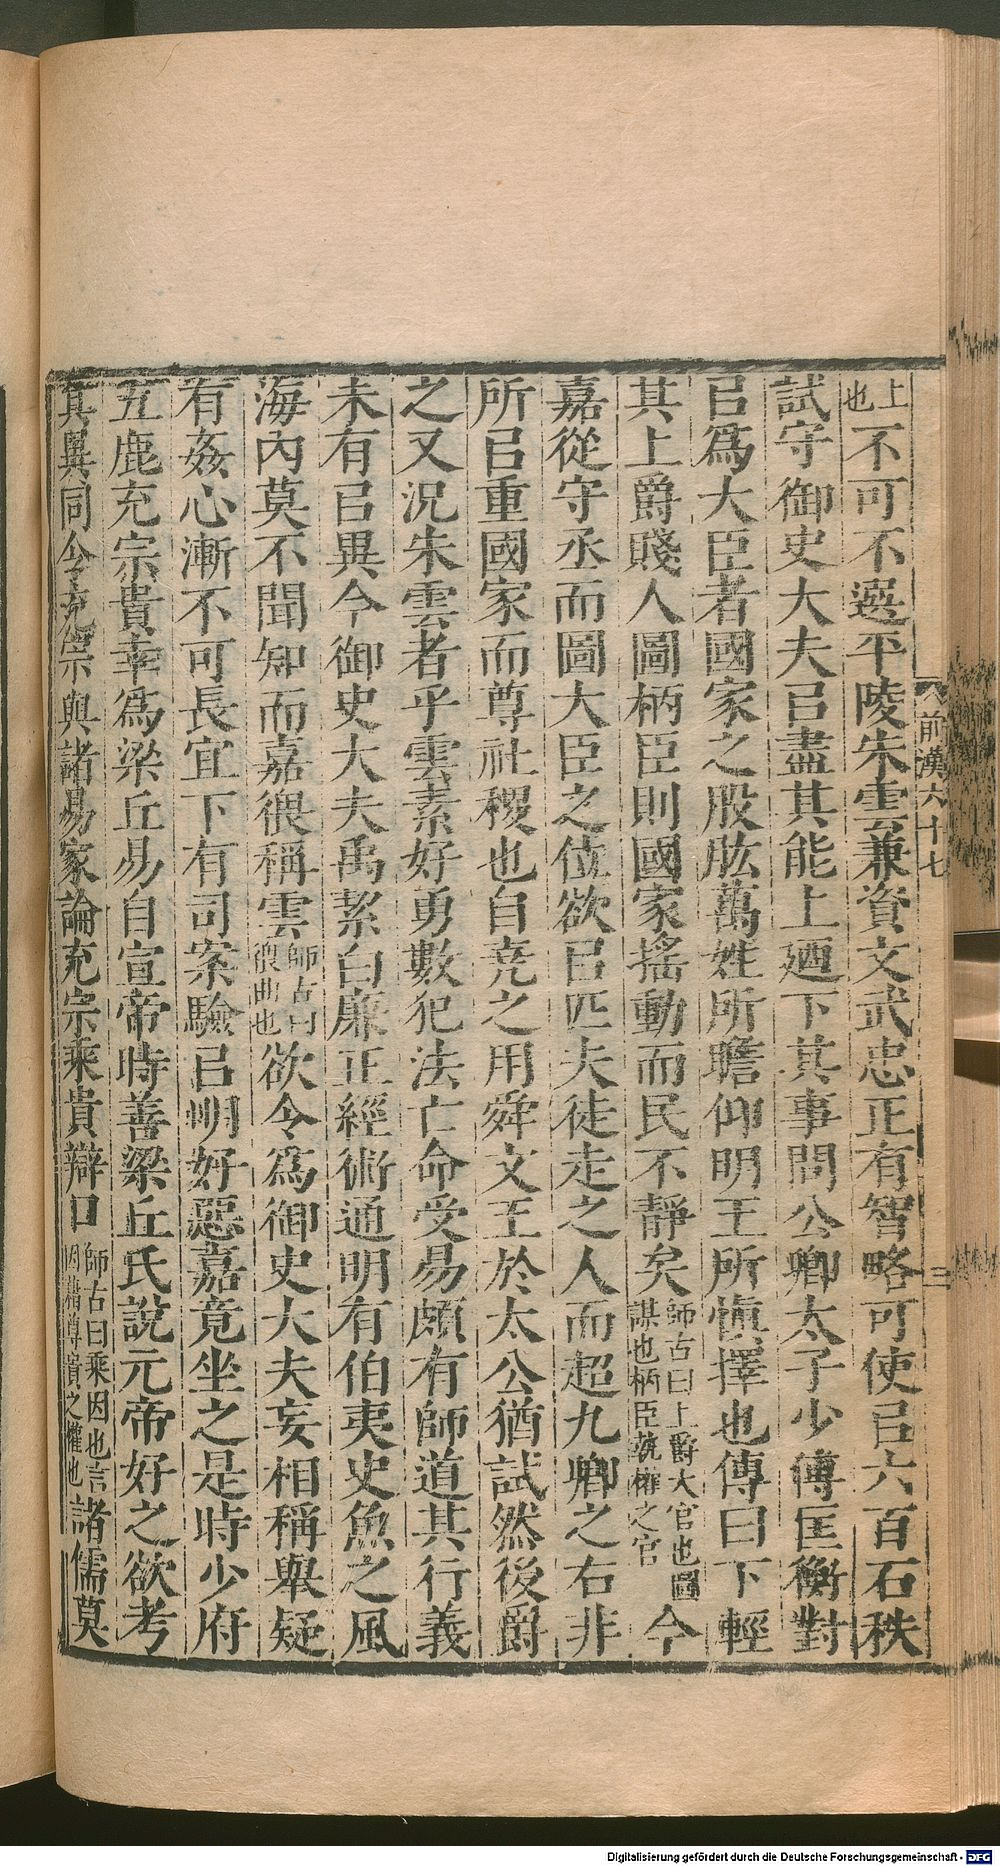 上也不可不選平陵朱雲兼資文武忠正有智略可使㠯六百石秩
試守御史大夫㠯盡其能上迺下其事問公卿太子少傅匡衡對
㠯爲大臣者國家之股肱萬姓所瞻仰明王所慎擇也傳曰下輕
其上爵賤人圖柄臣則國家搖動而民不靜矣師古曰上爵大官也圖謀也柄臣執權之官今
嘉從守丞而圖大臣之位欲㠯匹夫徒走之人而超九卿之右非
所㠯重國家而尊社稷也自堯之用舜文王於太公猶試然後爵
之又況朱雲者乎雲素好勇數犯法亡命受易頗有師道其行義
未有㠯異今御史大夫禹絜白廉正經術通明有伯夷史魚之風
海內莫不聞知而嘉猥稱雲師古曰猥曲也欲令爲御史大夫妄相稱舉疑
有姦心漸不可長宜下有司案驗㠯明好惡嘉竟坐之是時少府
五鹿充宗貴幸爲梁丘易自宣帝時善梁丘氏說元帝好之欲考
其異同令充宗與諸易家論充宗乘貴辯口師古曰乘因也言因藉尊貴之權也諸儒莫
前漢六十七
二
Digitalisierung gefördert durch die Deutsche Forschungsgemeinschaft - DFG